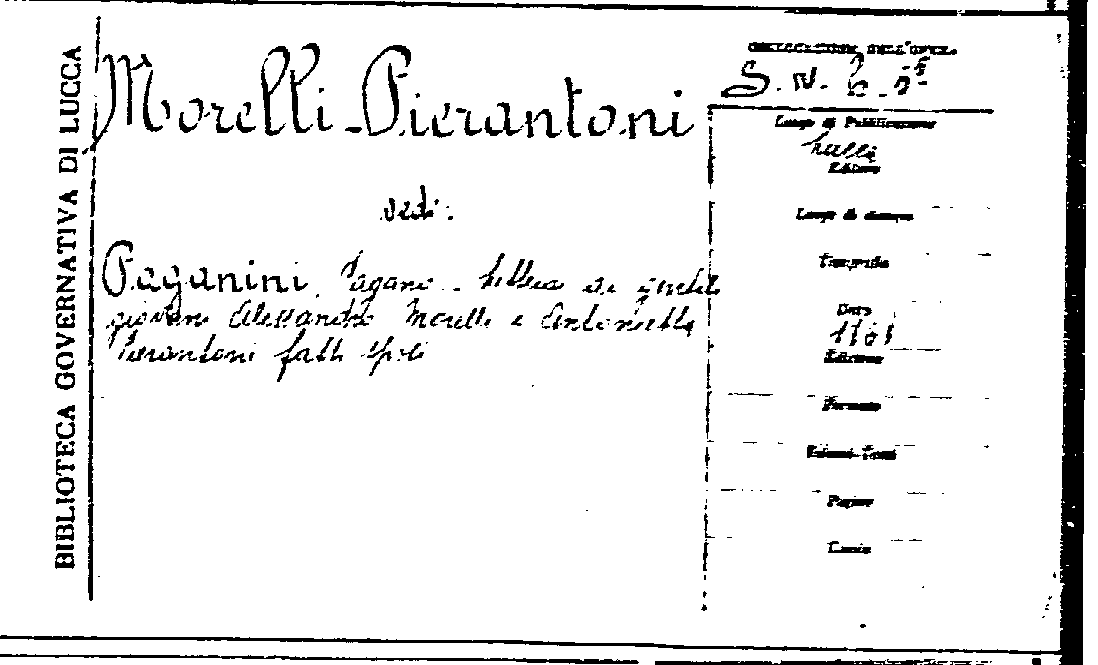 BIBLIOTECA GOVERNATIVA DI LUCCA
Morelli-Pierantoni
vedi:
Paganini, Pagano - Lettera ai gentili
giovani Alessandro Morelli e Antonietta
Pierantoni fatti sposi
COLLOCAZIONE DELL'OPERA
Luogo di Pubblicazione
Lucca
Editore
Luogo di stampa
Tipografia
Data
Edizione
Formato
Volumi-Tomi
Pagine